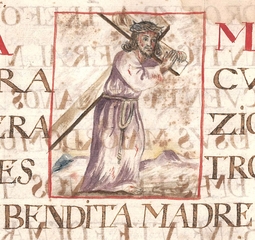 A M
RA CV
ERA ZIO
ES TRO
BENDITA MADRE